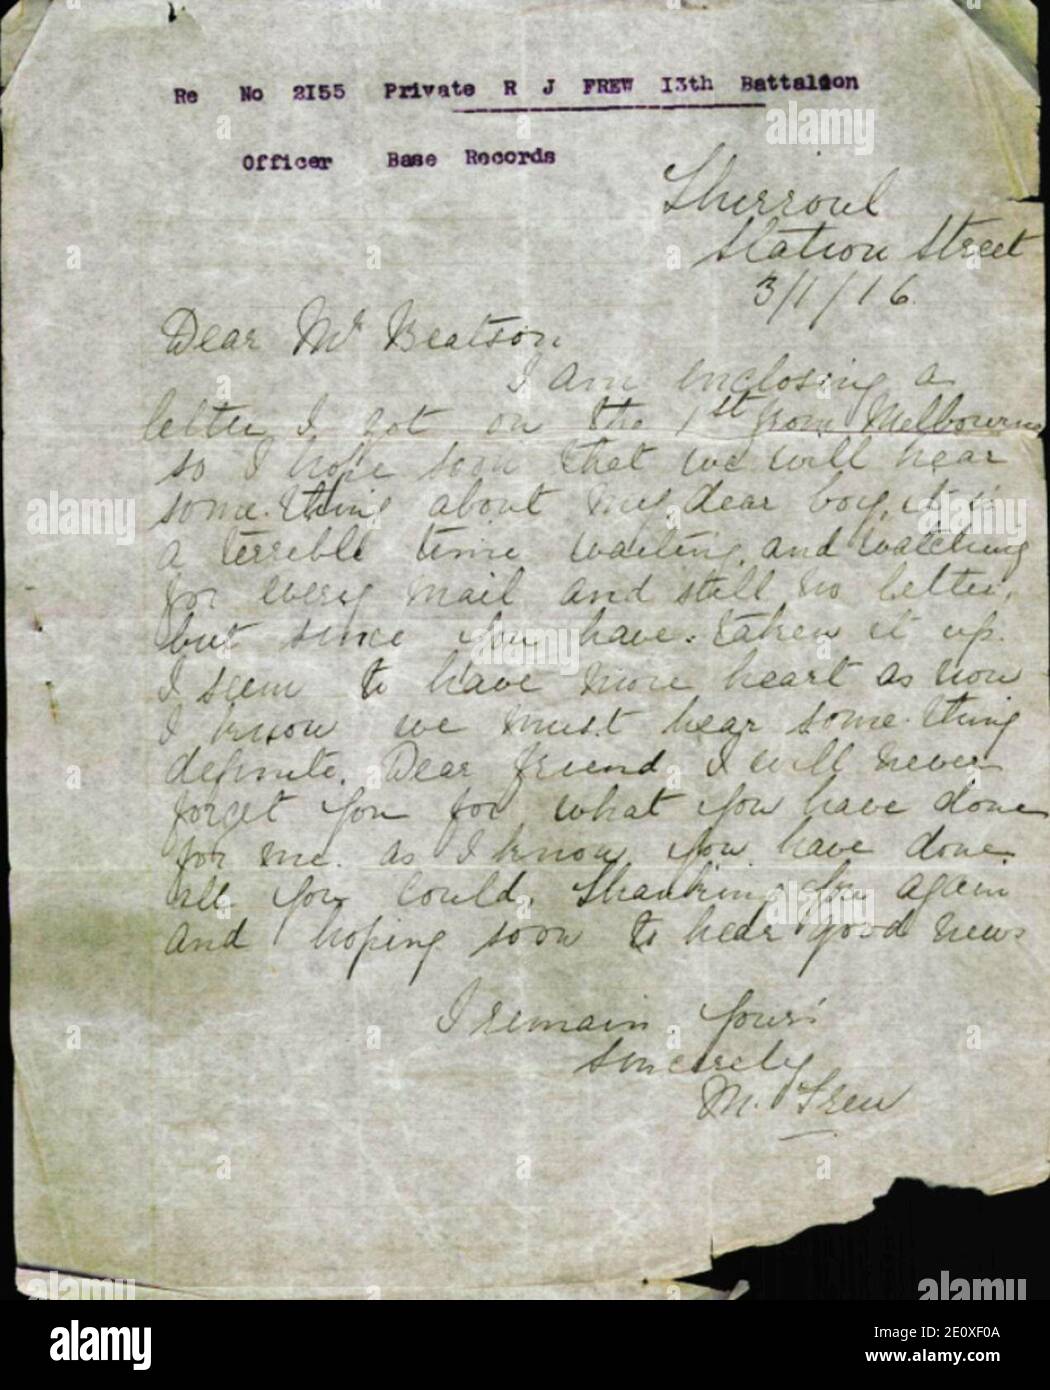 Re No 2155 Private R J FREW 13th Battalion
Officer Base Records
Thirroul
Station Street
3/1/16
Dear Mr Beatson
I am enclosing a
letter I got on the 1st from Melbourne
so I hope soon that we will hear
some.thing about my dear boy, it is
a terrible time waiting and watching
for every mail and still no letter,
but since you have taken it up.
I seem to have more heart as now
I know we must hear some.thing
definite. Dear friend I will never
forget you for what you have done
for me. as I know you have done
all you could, thanking you again
and hoping soon to hear good news
I remain yours
sincerely
M. Frew
alamy
alamy
Image ID: 2E0XF0A
www.alamy.com